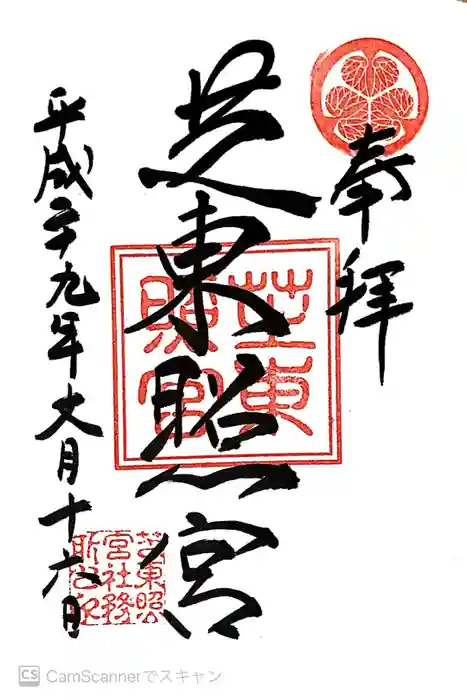 奉拝
芝東照宮
芝東
照宮
平成二十九年月十六日
芝東照
宮社務
所
CS CamScannerでスキャン